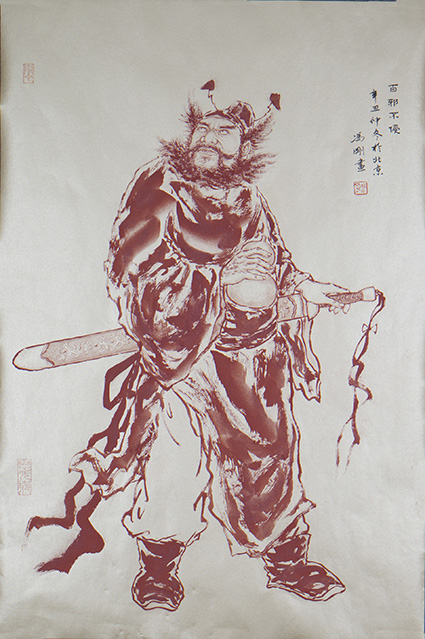 百邪不侵
辛丑仲冬於北京
馮剛畫